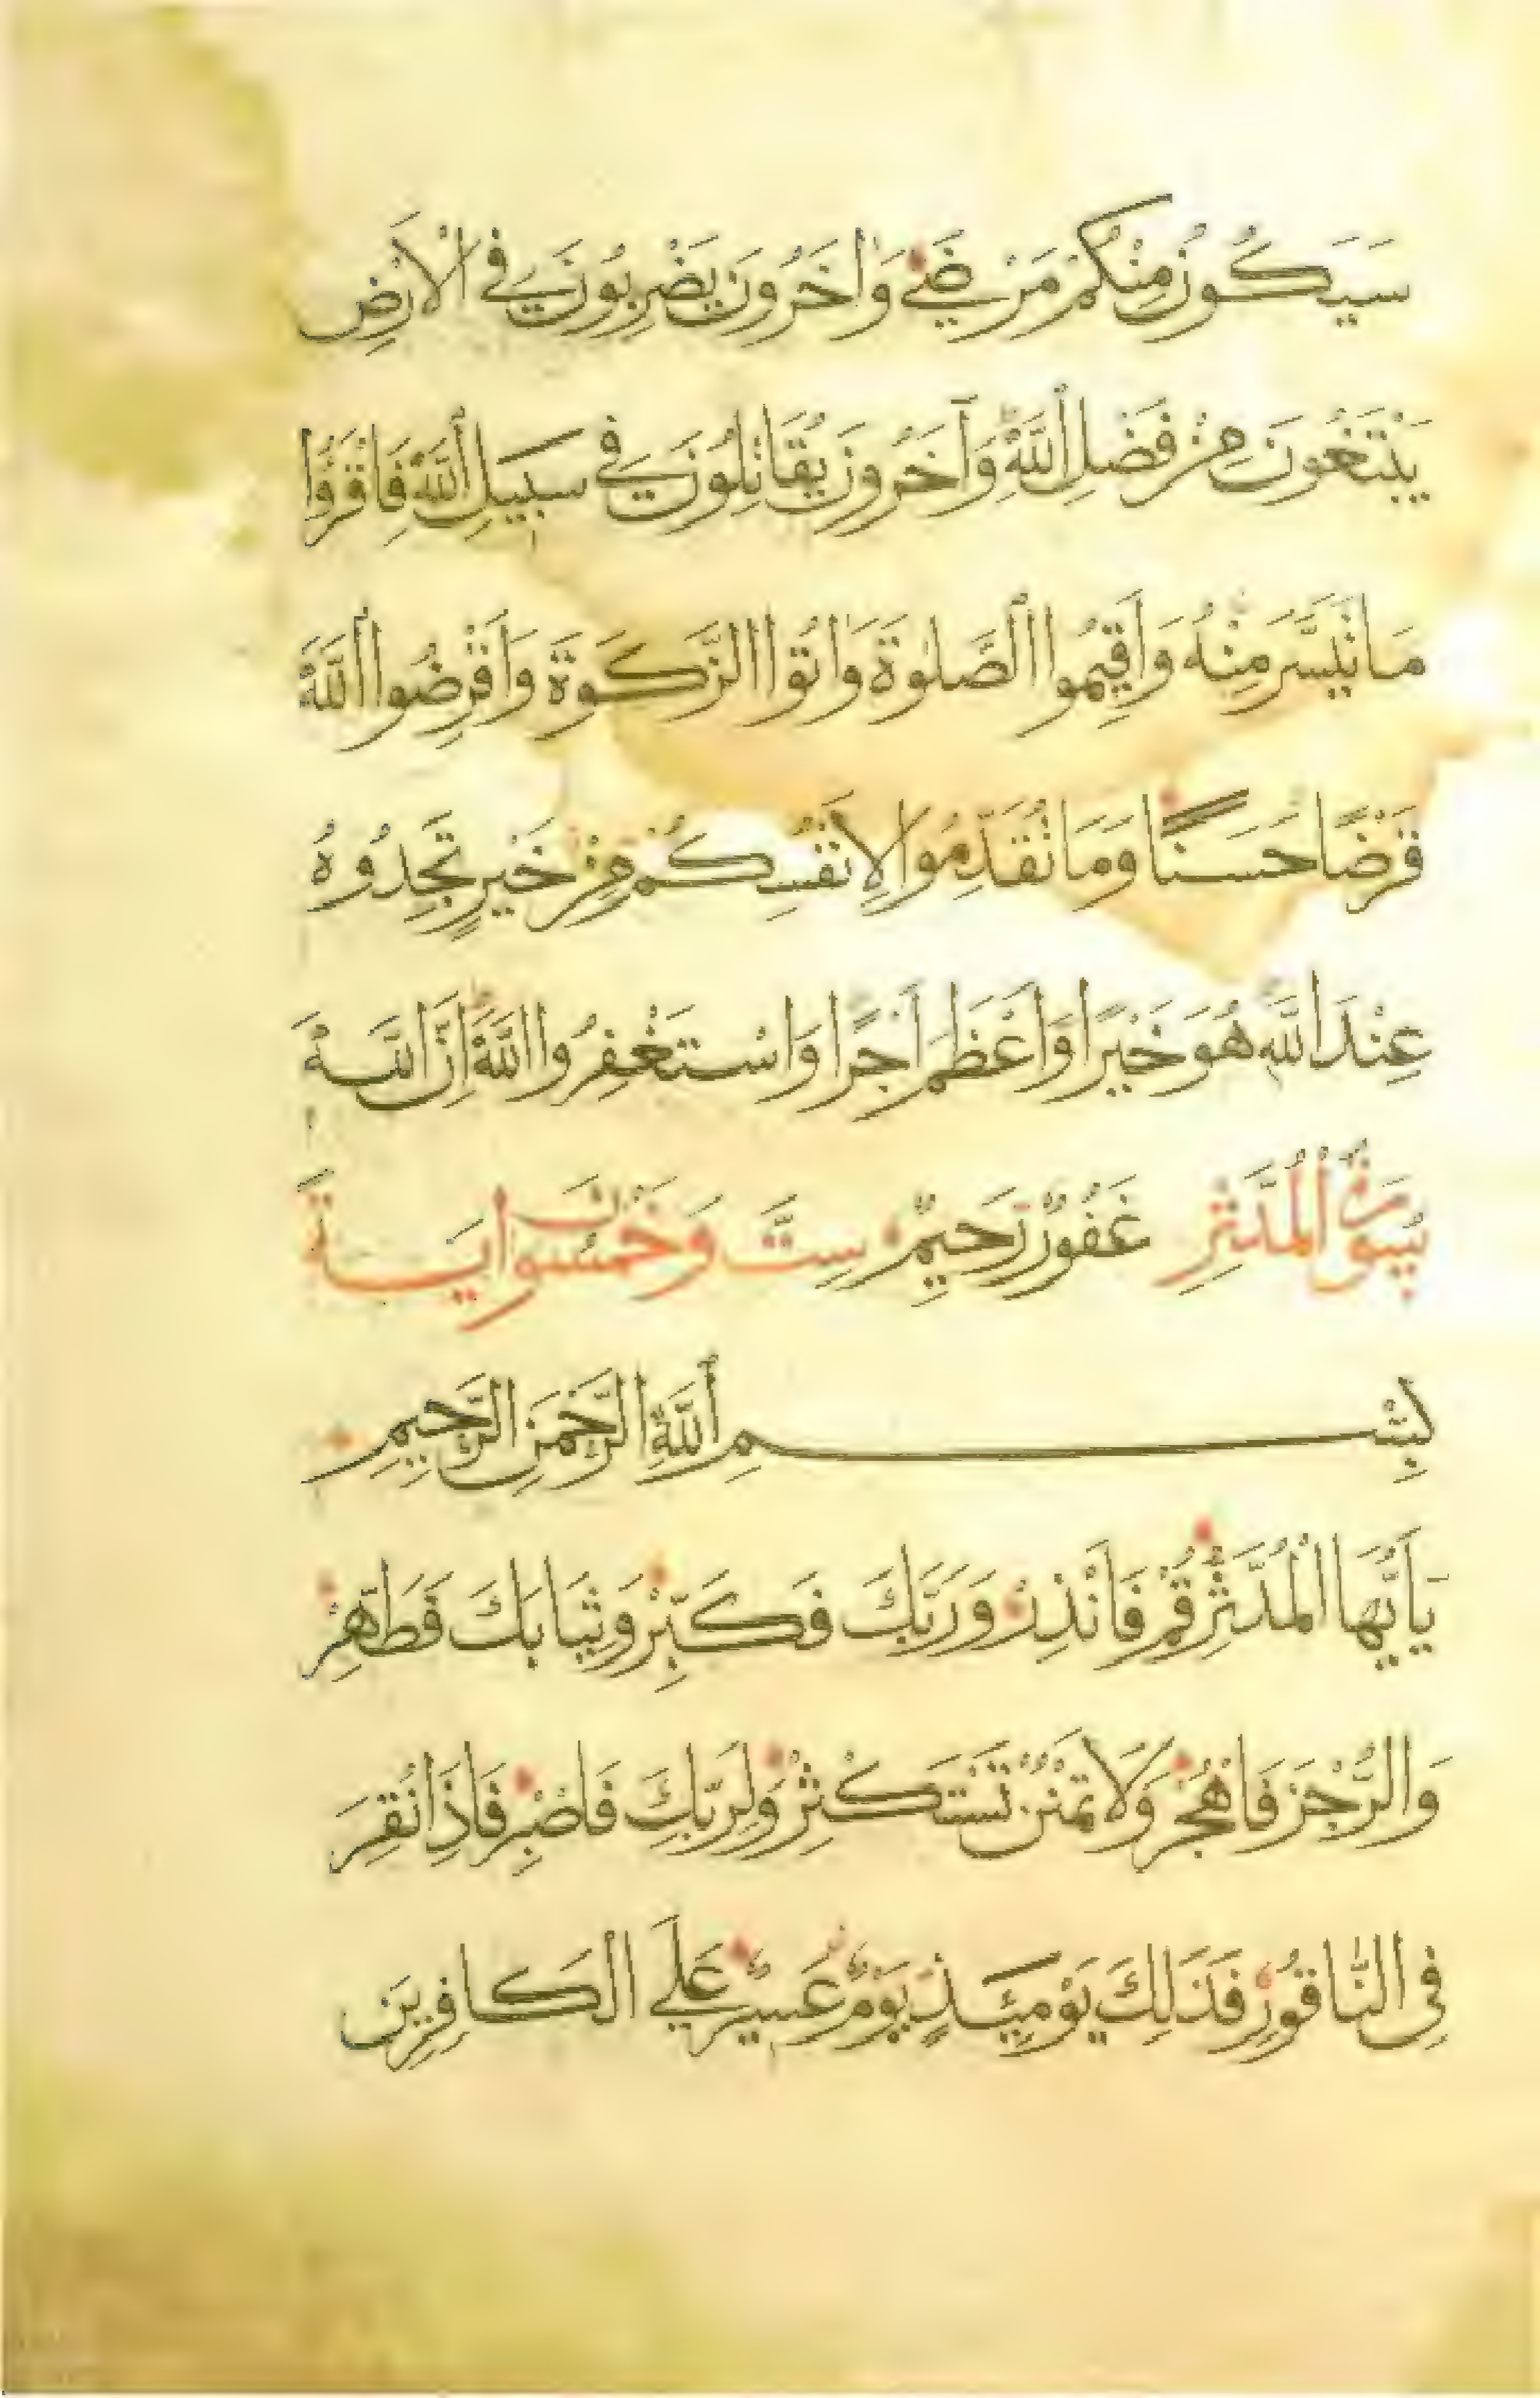 سَيَكُونُ مِنْكُمْ مَرْضَىٰ وَاٰخَرُونَ يَضْرِبُونَ فِي الْاَرْضِ
يَبْتَغُونَ مِنْ فَضْلِ اللَّهِ وَآخَرُونَ يُقَاتِلُونَ فِي سَبِيلِ اللَّهِ فَاقْرَؤُا
مَا تَيَسَّرَ مِنْهُ وَاَقِيمُوا الصَّلٰوةَ وَاٰتُوا الزَّكَوةَ وَاَقْرِضُوا اللَّهَ
قَرْضًا حَسَنًا وَمَا تُقَدِّمُوا لِاَنْفُسِكُمْ مِنْ خَيْرٍ تَجِدُوهُ
عِنْدَ اللَّهِ هُوَ خَيْرًا وَاَعْظَمَ اَجْرًا وَاسْتَغْفِرُوا اللَّهَ اِنَّ اللَّهَ
سُورَةُ الْمُدَّثِّرِ غَفُورٌ رَحِيمٌ سِتٌّ وَخَمْسُونَ اٰيَةً
بِسْمِ اللَّهِ الرَّحْمَنِ الرَّحِيمِ
يَا اَيُّهَا الْمُدَّثِّرُ قُمْ فَاَنْذِرْ وَرَبَّكَ فَكَبِّرْ وَثِيَابَكَ فَطَهِّرْ
وَالرُّجْزَ فَاهْجُرْ وَلَا تَمْنُنْ تَسْتَكْثِرُ وَلِرَبِّكَ فَاصْبِرْ فَاِذَا نُقِرَ
فِي النَّاقُورِ فَذَلِكَ يَوْمَئِذٍ يَوْمٌ عَسِيرٌ عَلَى الْكَافِرِينَ